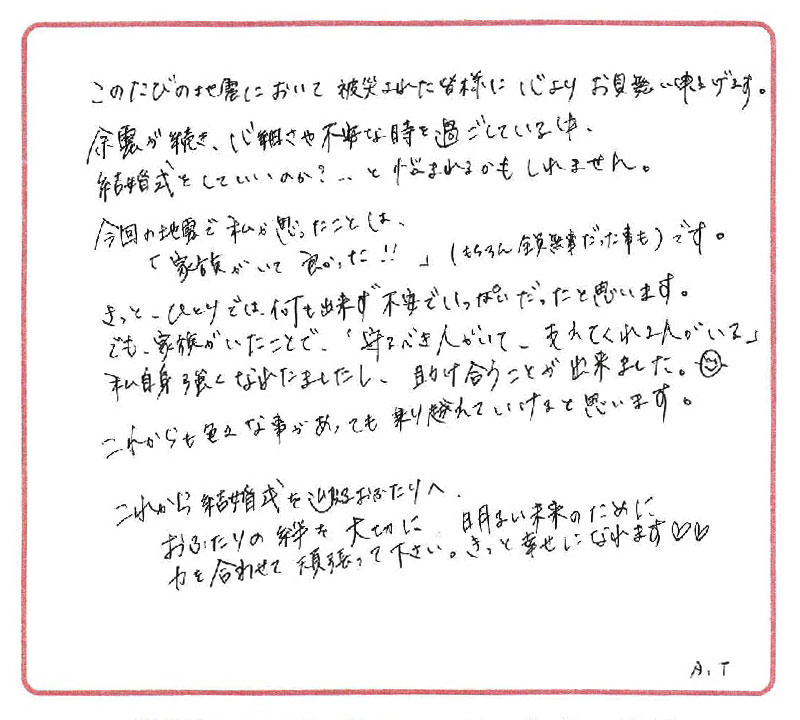 このたびの地震において被災された皆様に心よりお見舞い申し上げます。
余震が続き、心細さや不安な時を過ごしている中、
結婚式をしていいのか?…と悩まれるかもしれません。
今回の地震で私が思ったことは、
「家族がいて良かった!!」(もちろん全員無事だった事も)です。
きっと、ひとりでは何も出来ず不安でいっぱいだったと思います。
でも、家族がいたことで、「守るべき人がいて、支えてくれる人がいる」
私自身強くなれたましたし、助け合うことが出来ました。
これからも色々な事があっても乗り越えていけると思います。
これから結婚式を迎えるおふたりへ、
おふたりの絆を大切に 明るい未来のために
力を合わせて頑張って下さい。きっと幸せになれます♡♡
A.T